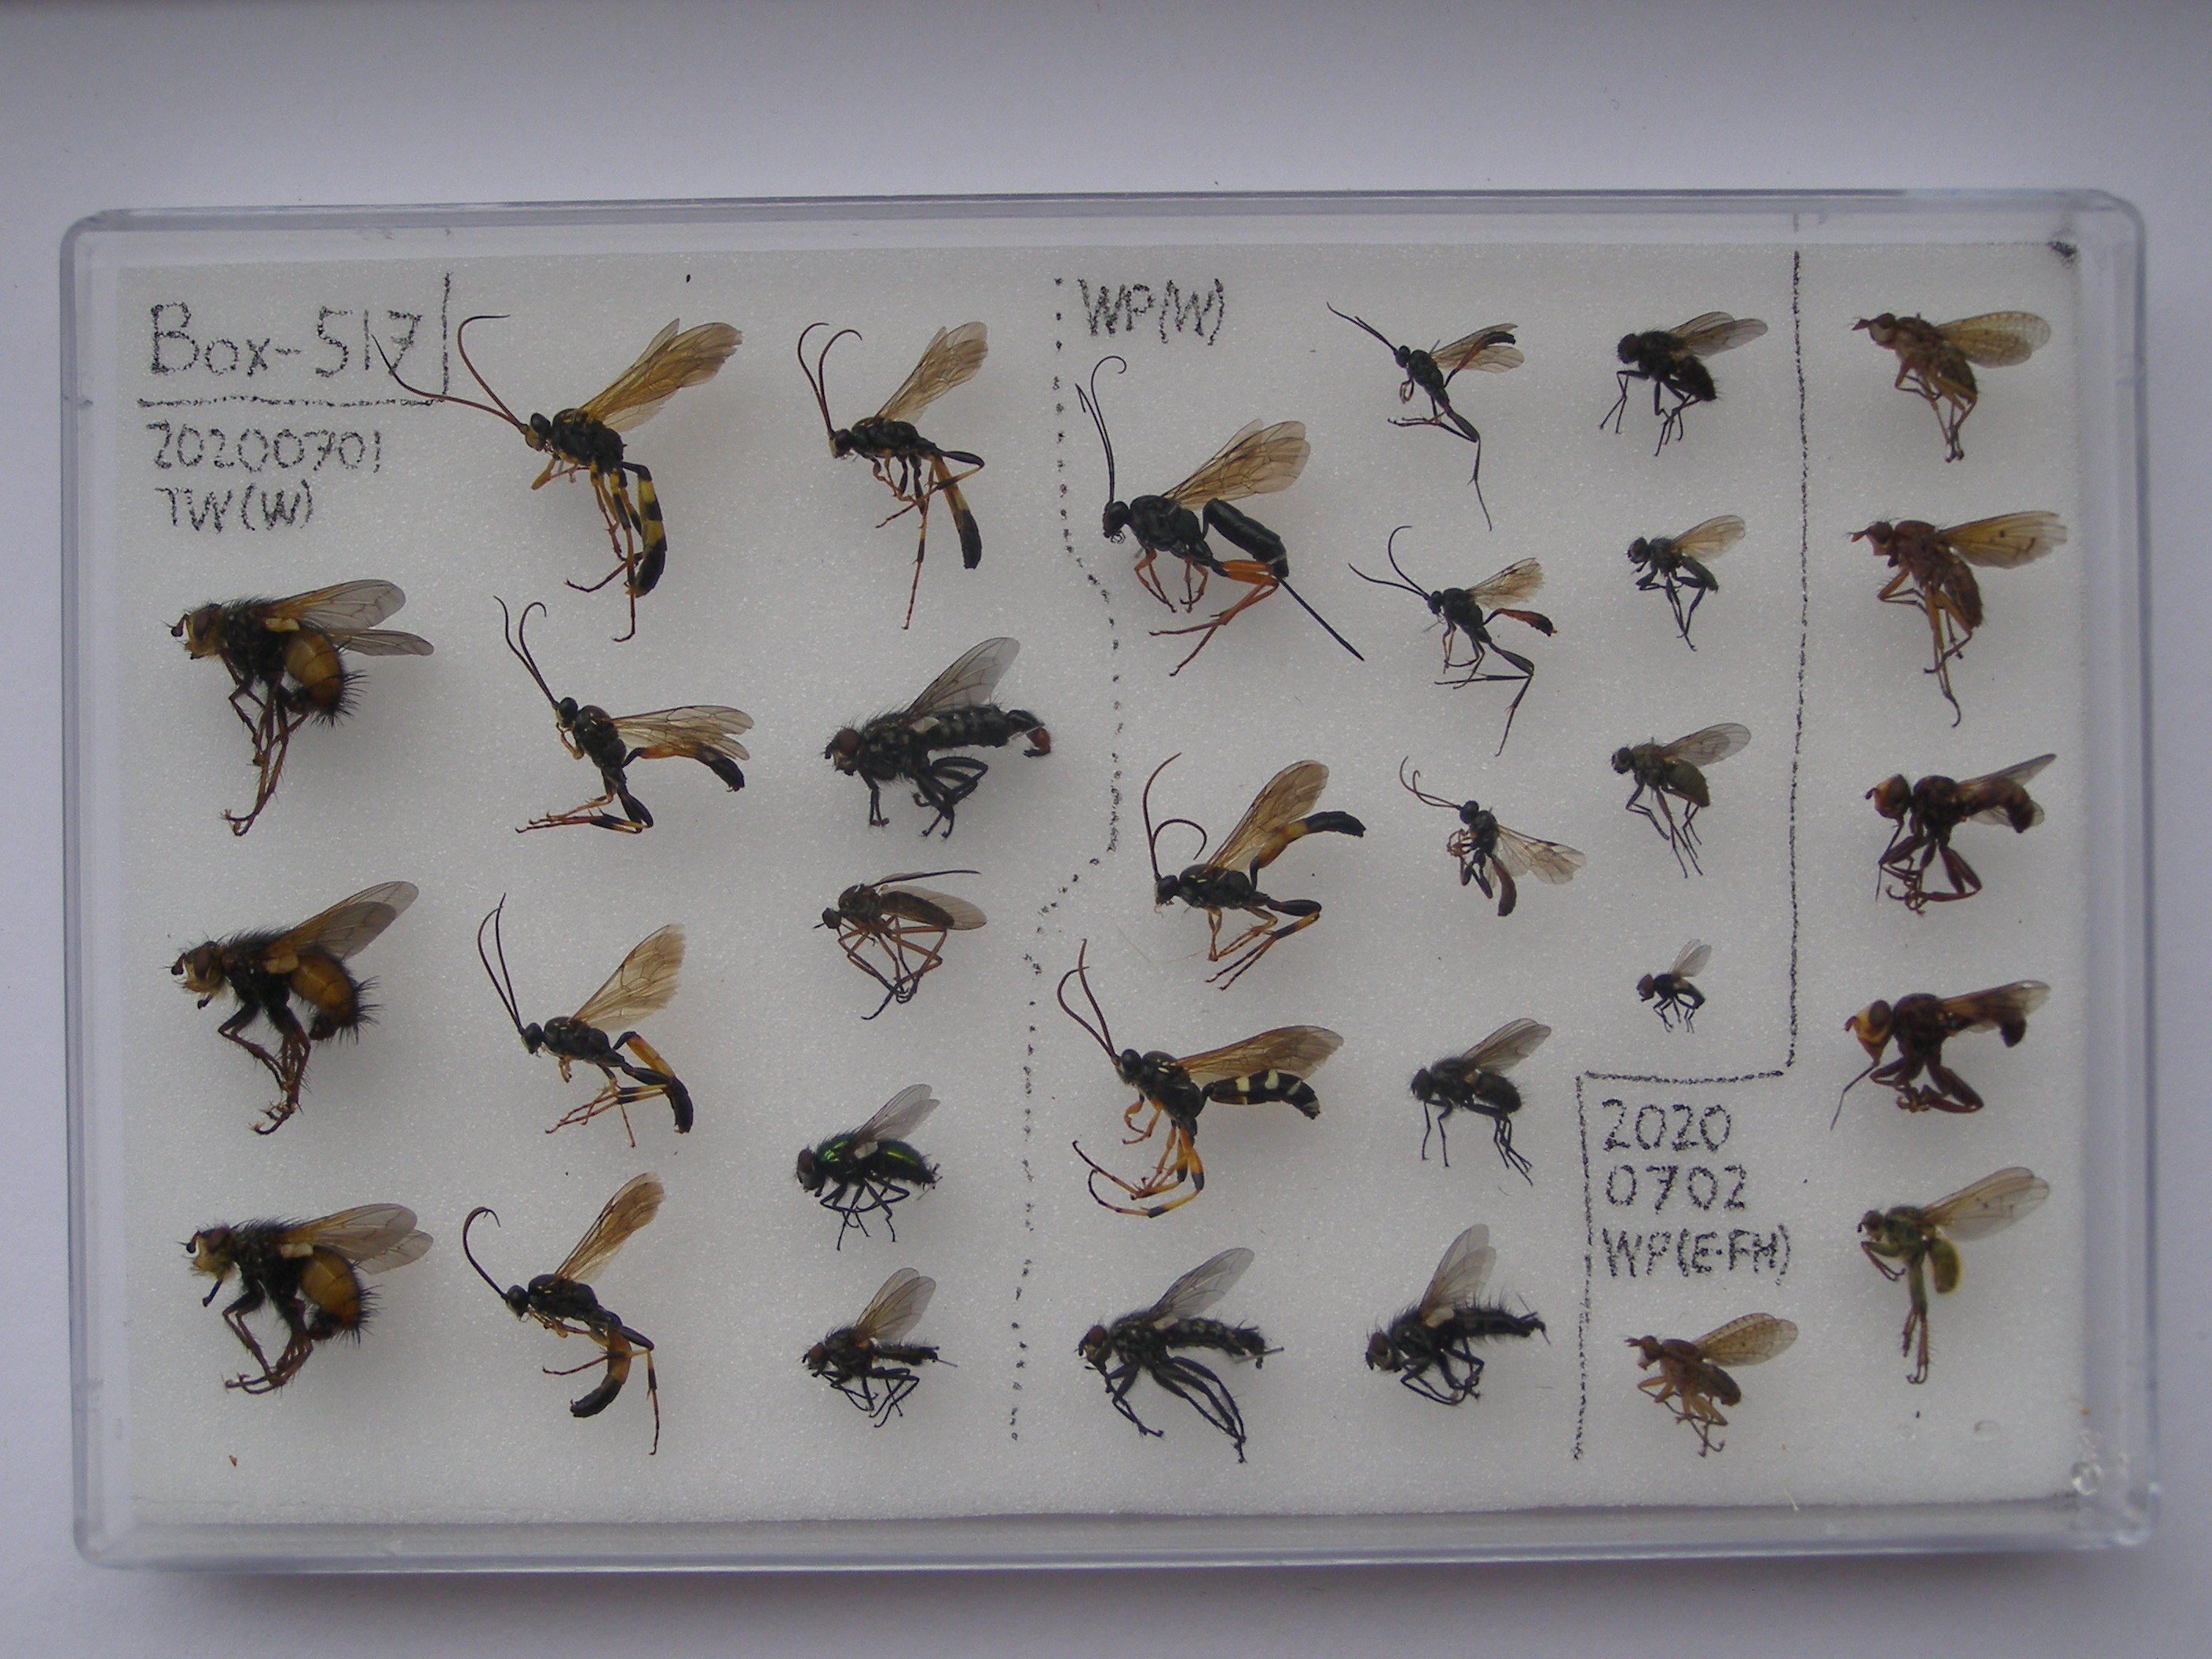 Box-517
20200701
TW(W)
WP(W)
2020
0702
WP(E-FH)